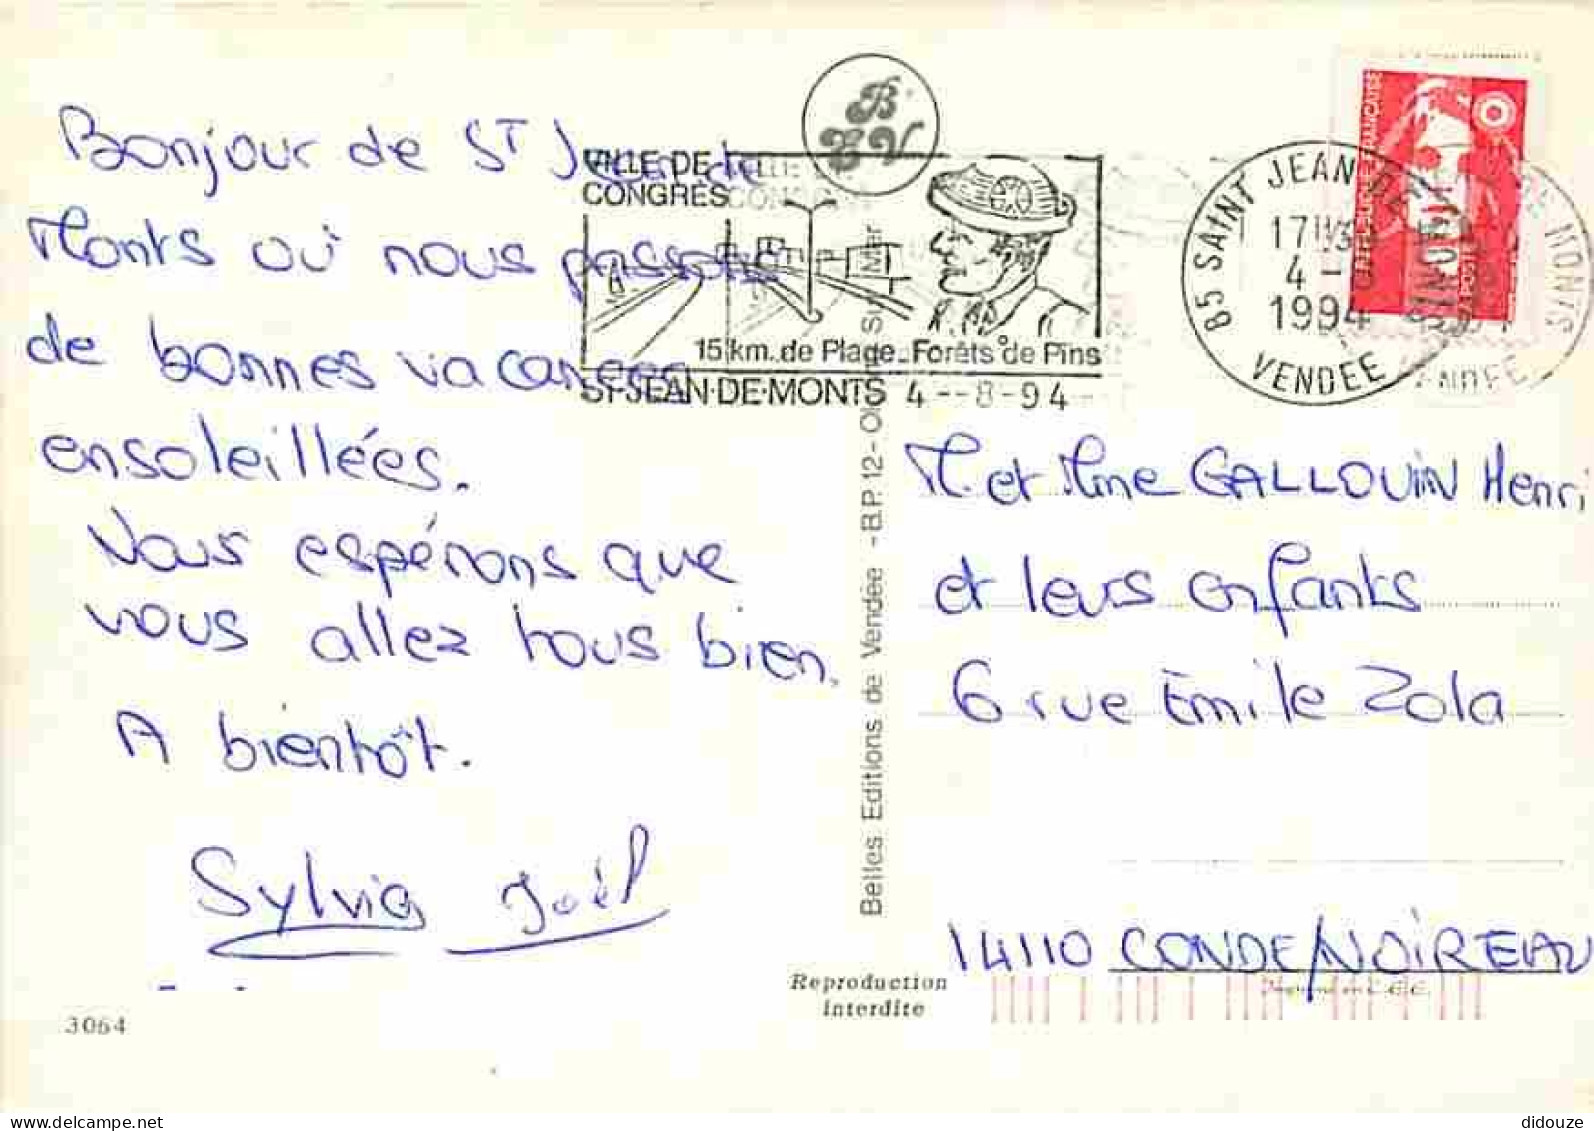 Bonjour de ST Jean de
Monts où nous passons
de bonnes vacances
ensoleillées.
Nous espérons que
vous allez tous bien.
A bientôt.
Sylvia Joël
3064
B
E V
VILLE DE
CONGRES
15 km. de Plage. Forêts de Pins
ST-JEAN-DE-MONTS 4--8-94
85 SAINT JEAN DE MONTS
17H
4 - 8
1994
VENDEE
REPUBLIQUE FRANÇAISE
LA POSTE
Belles Editions de Vendée - B.P. 12 - Olonne sur Mer
M. et Mme GALLOUIN Henri
et leurs enfants
6 rue Emile Zola
14110 CONDE/NOIREAU
Reproduction
interdite
didouze @ delcampe.net